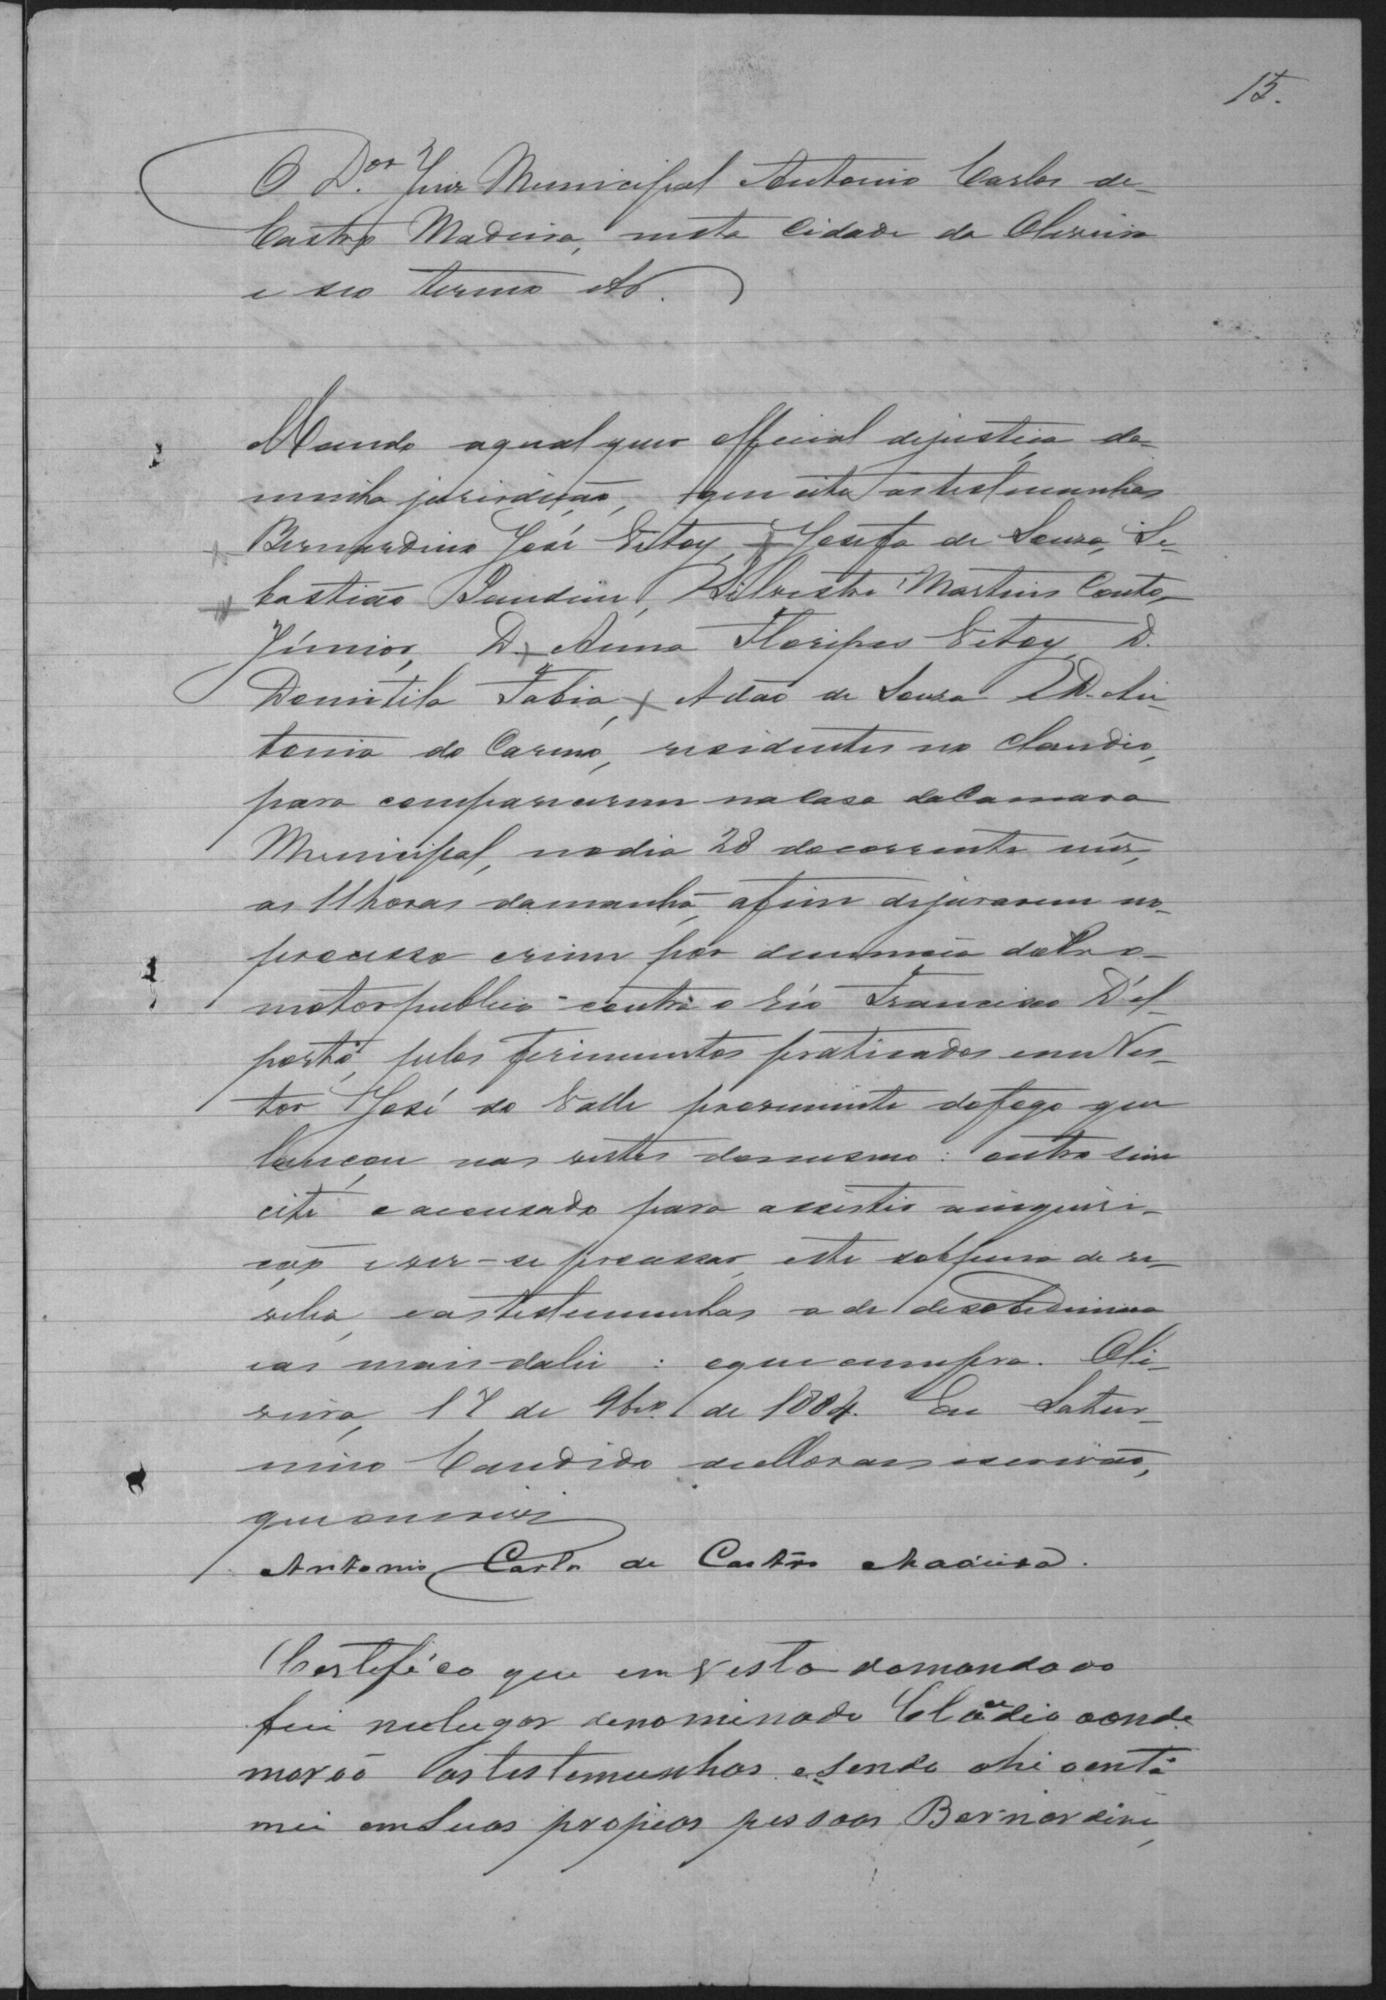 15.
O D.or Juiz Municipal Antonio Carlos de
Castro Madeira, nesta Cidade da Oliveira
e seo termo etc.
Mando aqualquer official dejustiça de
minha jurisdicção, que cite astestemunhas
Bernardino José Vitoy, Josefa de Souza, Se-
bastião Pandim, Silvestre Martins Couto
Júnior, D. Anna Floripes Vitoy, D.
Domitila Fabia, Adão de Souza e D. An-
tonia do Carmo, residentes no Claudio,
para comparecerem nacasa daCamara
Municipal, nodia 28 docorrente mês,
as 11 horas damanhã, afim dejurarem no
processo crime por denuncia doPro-
motorpublico contra o réo Francisco D'el
porto, pelos ferimentos praticados em Nes-
tor José do Valle proveniente dofogo que
lançou nas vestes domesmo: outro sim
cite oacusado para assistir ainquiri-
ção e ver-se processar, este sobpena de re-
velia, eastestemunhas a de desobediencia
eas mais dalei: oque cumpra. Oli-
veira, 17 de 9bro. de 1884. Eu Satur-
nino Candido deMoraes escrivão,
queoescrevi
Antonio Carlos de Castro Madeira.
Certifico que em vista domandado
fui nolugar denominado Claudio aonde
morão astestemunhas esendo ahi aenti
mei emsuas propias pessoas Bernardino,